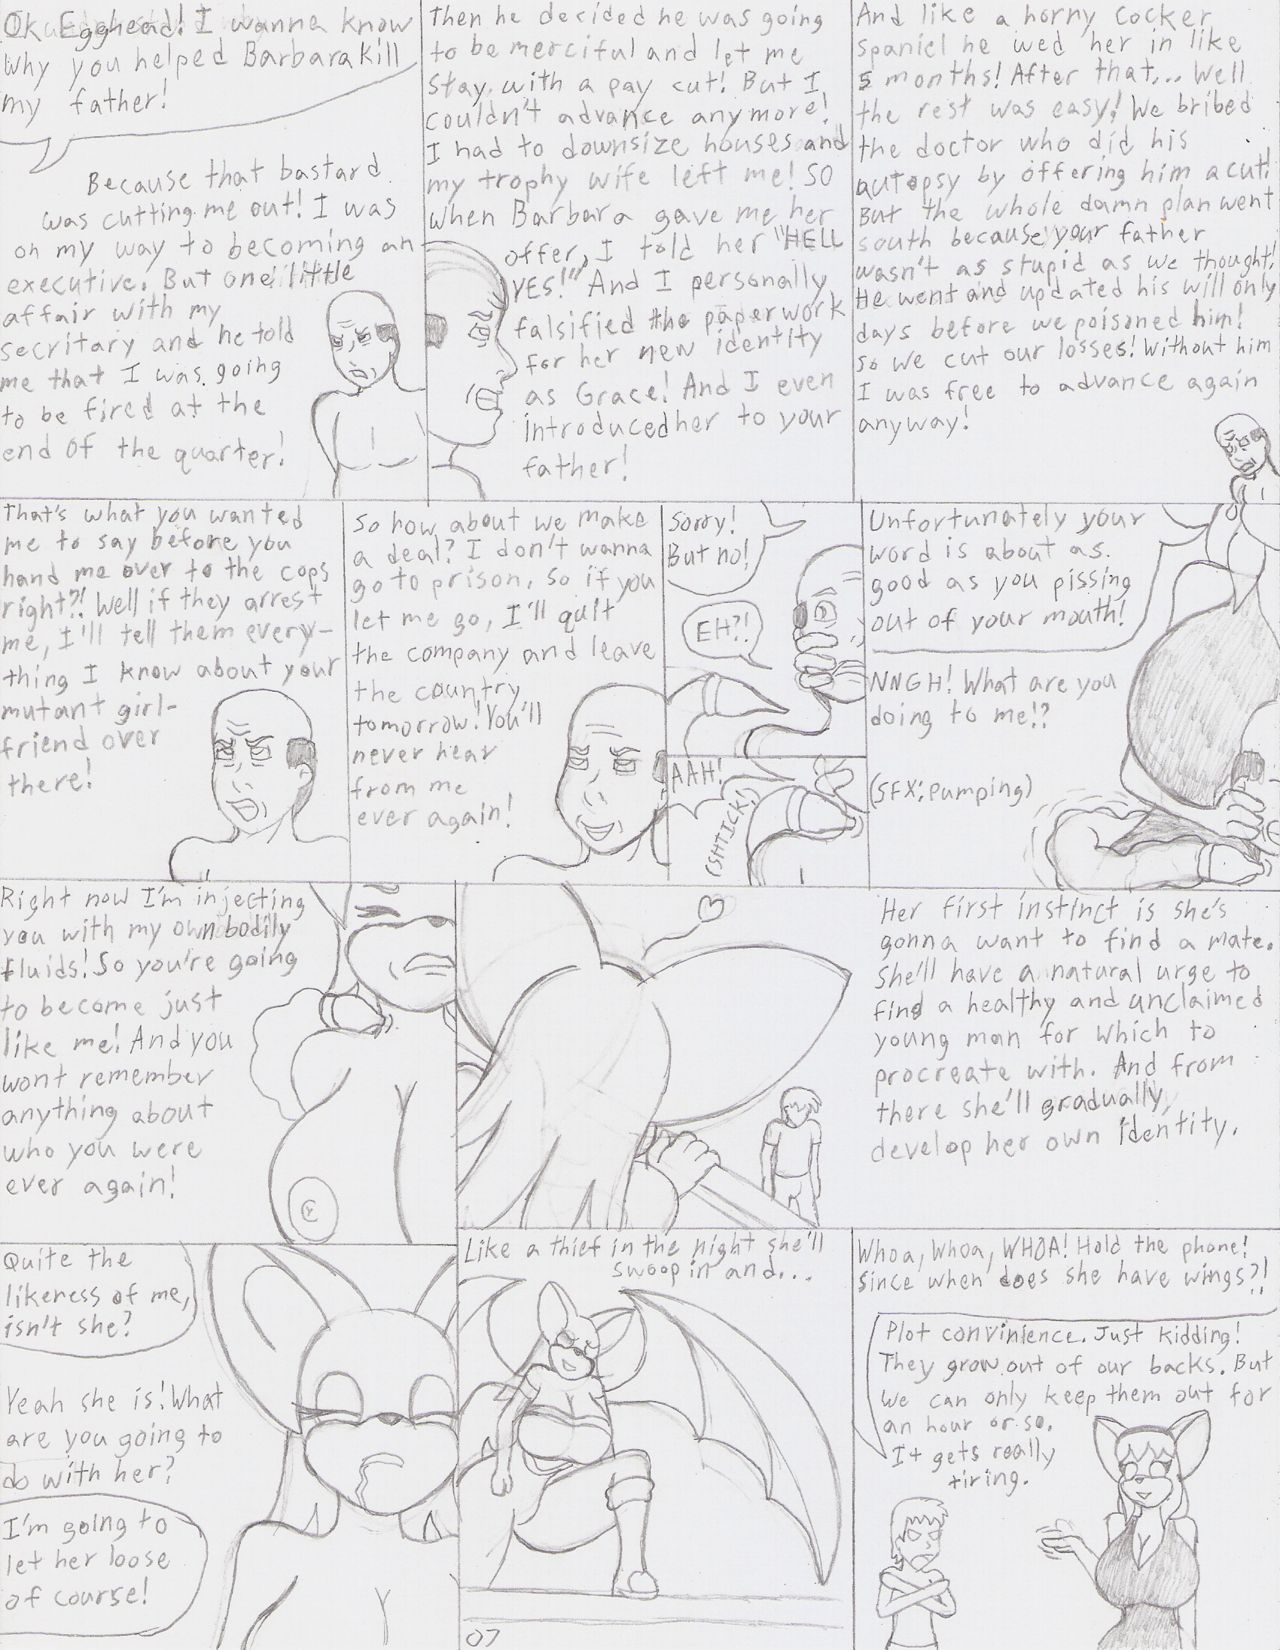 Ok, Egghead! I wanna know
why you helped Barbara kill
my father!
Because that bastard
was cutting me out! I was
on my way to becoming an
executive. But one little
affair with my
secritary and he told
me that I was going
to be fired at the
end of the quarter!
Then he decided he was going
to be merciful and let me
stay, with a pay cut! But I
couldn't advance anymore!
I had to downsize houses and
my trophy wife left me! So
when Barbara gave me her
offer, I told her "HELL
YES!" And I personally
falsified the paperwork
for her new identity
as Grace! And I even
introduced her to your
father!
And like a horny cocker
spaniel he wed her in like
5 months! After that... Well
the rest was easy! We bribed
the doctor who did his
autopsy by offering him a cut!
But the whole damn plan went
south because your father
wasn't as stupid as we thought!
He went and updated his will only
days before we poisoned him!
So we cut our losses! Without him
I was free to advance again
anyway!
That's what you wanted
me to say before you
hand me over to the cops
right?! Well if they arrest
me, I'll tell them every-
thing I know about your
mutant girl-
friend over
there!
So how about we make
a deal? I don't wanna
go to prison, so if you
let me go, I'll quit
the company and leave
the country
tomorrow! You'll
never hear
from me
ever again!
Sorry!
But no!
EH?!
AAH!
(SHTICK!)
Unfortunately your
word is about as
good as you pissing
out of your mouth!
NNGH! What are you
doing to me!?
(SFX; Pumping)
Right now I'm injecting
you with my own bodily
fluids! So you're going
to become just
like me! And you
wont remember
anything about
who you were
ever again!
Her first instinct is she's
gonna want to find a mate.
She'll have a natural urge to
find a healthy and unclaimed
young man for which to
procreate with. And from
there she'll gradually
develop her own identity.
Quite the
likeness of me,
isn't she?
Yeah she is! What
are you going to
do with her?
I'm going to
let her loose
of course!
Like a thief in the night she'll
swoop in and...
Whoa, Whoa, WHOA! Hold the phone!
Since when does she have wings?!
Plot convinience. Just kidding!
They grow out of our backs. But
we can only keep them out for
an hour or so.
It gets really
tiring.
07